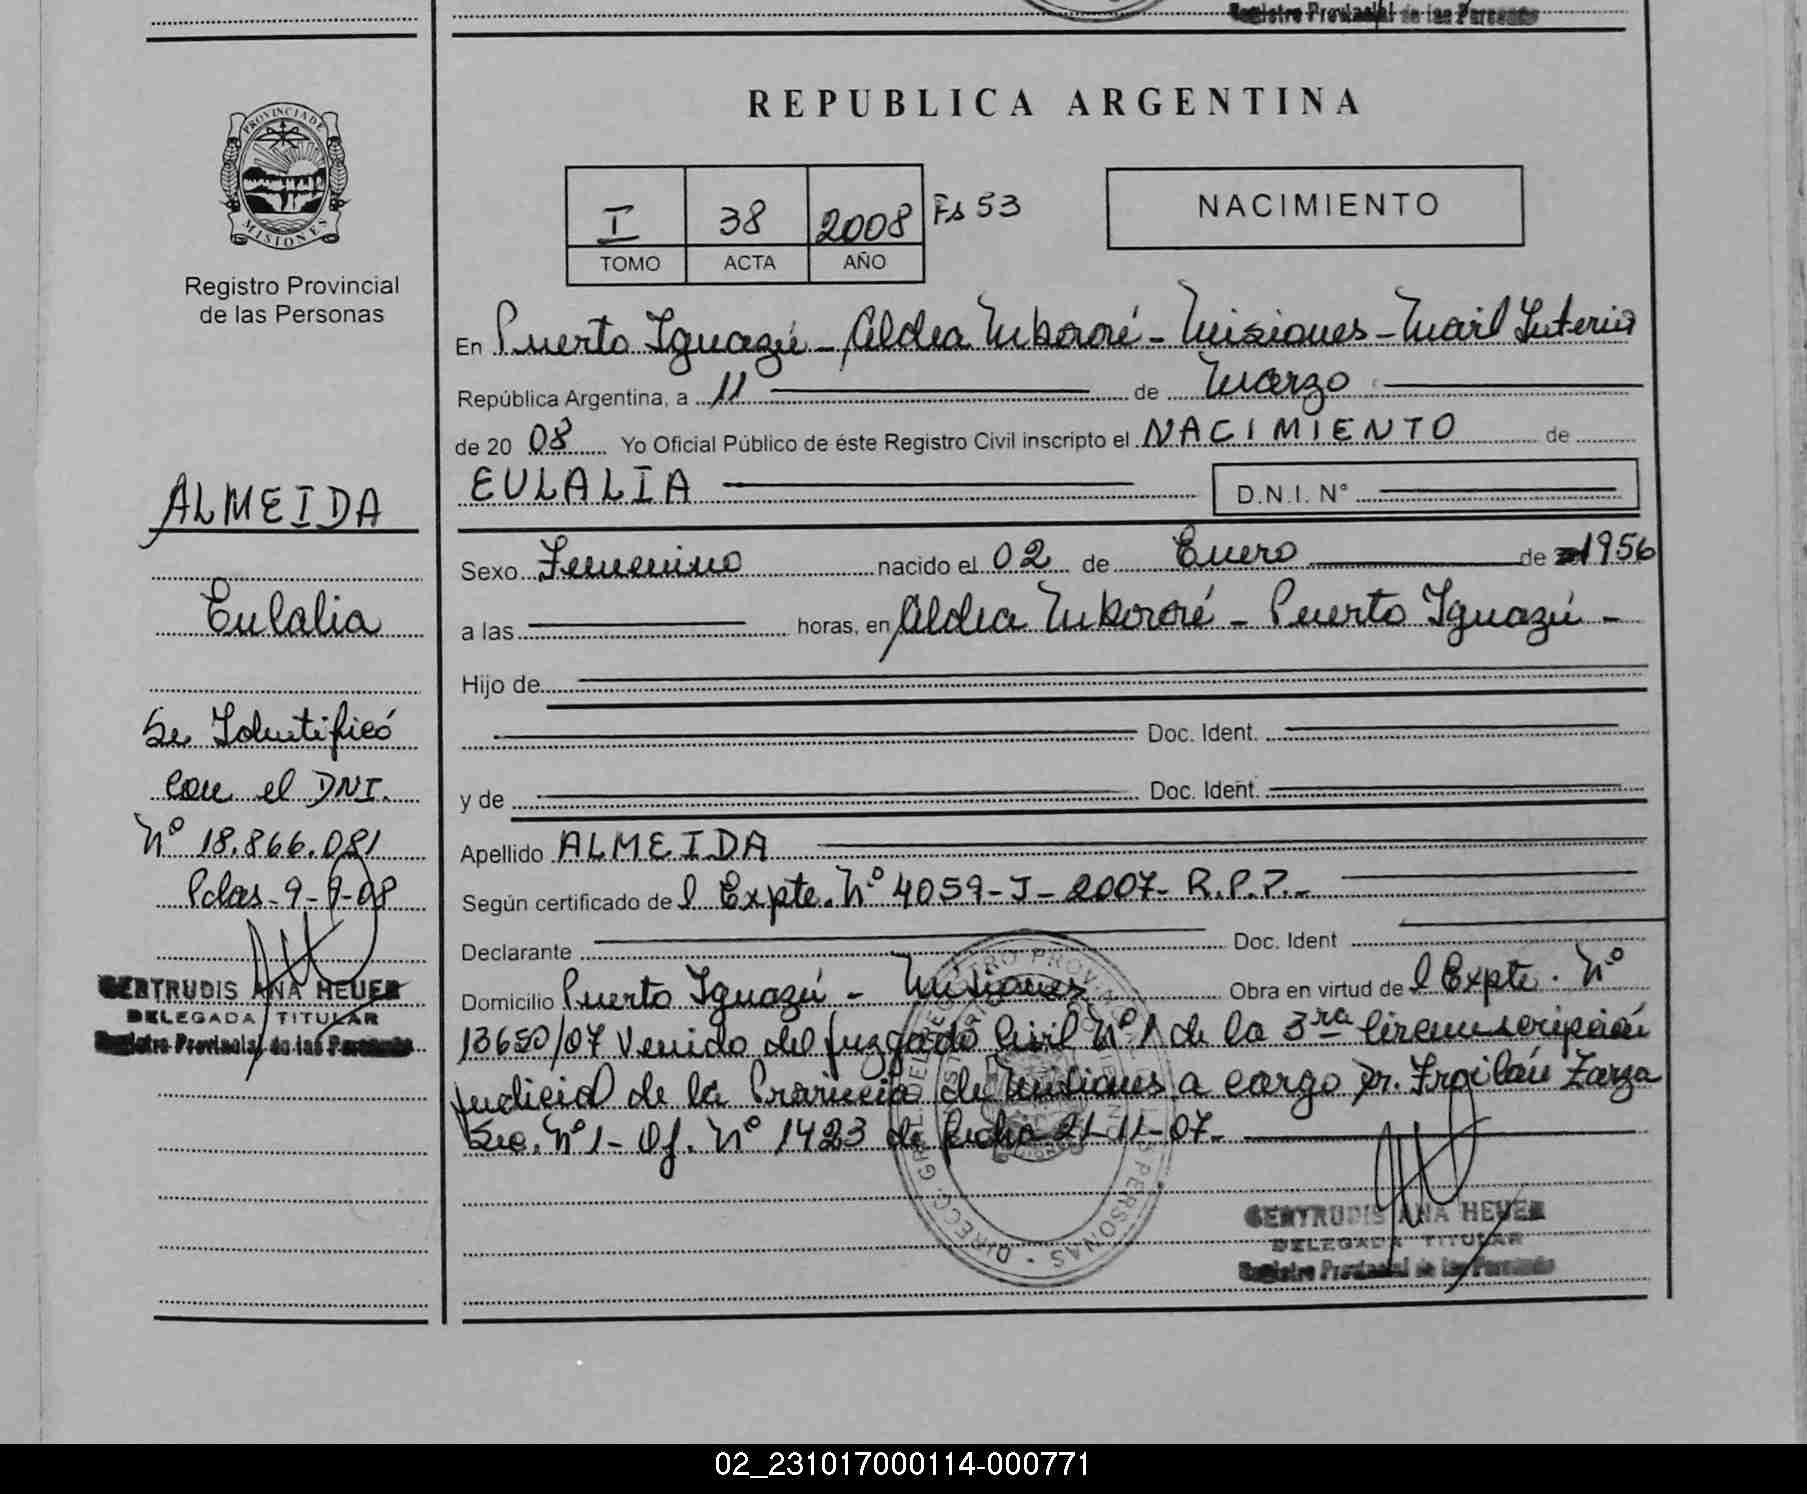 Registro Provincial de las Personas
PROVINCIA DE
MISIONES
Registro Provincial
de las Personas
ALMEIDA
Eulalia
Se Identificó
con el DNI.
Nº 18.866.081
Pdas-9-9-08
GERTRUDIS ANA HEUER
DELEGADA TITULAR
Registro Provincial de las Personas
REPUBLICA ARGENTINA
I 38 2008 Fs 53
TOMO ACTA AÑO
NACIMIENTO
En Puerto Iguazú - Aldea Mbororé - Misiones -
República Argentina, a 11 de Marzo
de 20 08 Yo Oficial Público de éste Registro Civil inscripto el NACIMIENTO de
EULALIA D.N.I. N°
Sexo Femenino nacido el 02 de Enero de 1956
a las horas, en Aldea Mbororé - Puerto Iguazú -
Hijo de
Doc. Ident.
y de Doc. Ident.
Apellido ALMEIDA
Según certificado de l Expte. Nº 4059-J-2007- R.P.P.-
Declarante Doc. Ident
Domicilio Puerto Iguazú - Misiones Obra en virtud de l Expte. Nº
13650/07 Venido del Juzgado Civil Nº 1 de la 3ra Circunscripción
Judicial de la Provincia de Misiones a cargo Dr. Froilán Zarza
Sec. Nº 1- Of. Nº 1423 de fecha 21-11-07-
GERTRUDIS ANA HEUER
DELEGADA TITULAR
Registro Provincial de las Personas
02_231017000114-000771